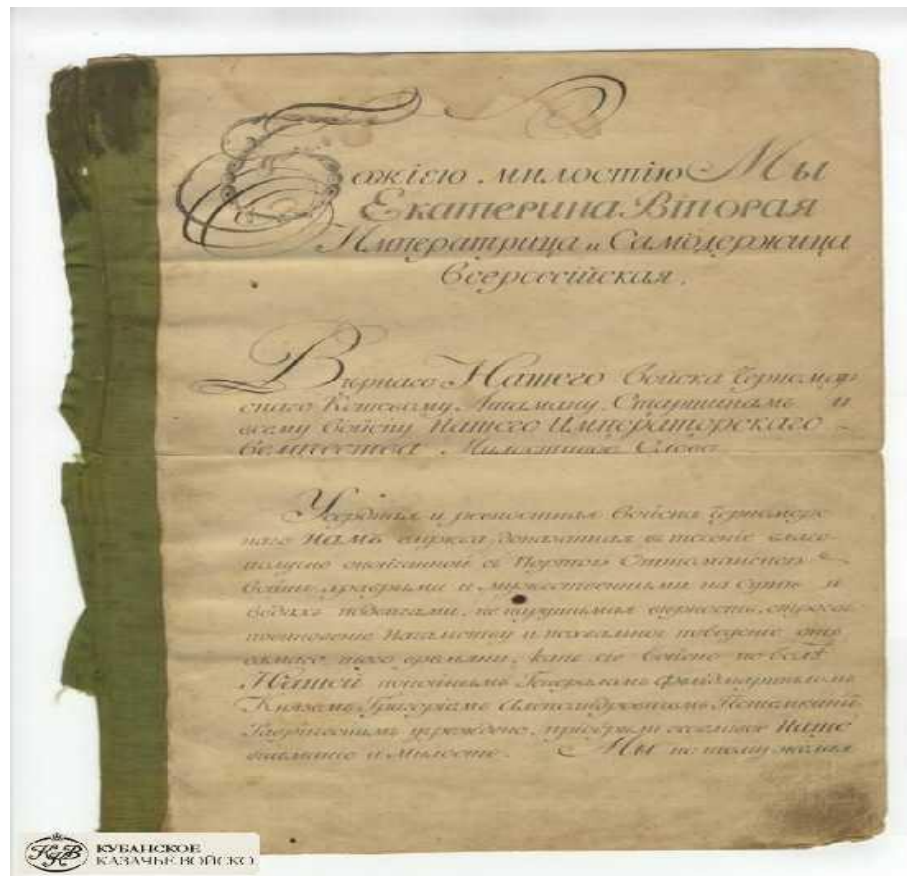 Божіею милостію Мы
Екатерина Вторая
Императрица и Самодержица
Всероссійская.
Вѣрнаго Нашего Войска Черномор
скаго Кошевому Атаману, Старшинамъ и
всему войску Нашего Императорскаго
величества Милостивое Слово
Усердная и ревностная Войска Черномор
скаго Намъ служба, доказанная въ теченіе благо
получно оконченной съ Портою Оттоманскою
войны, храбрыми и мужественными на сушѣ и
водахъ подвигами, не нарушимая вѣрность, строгое
повиновеніе начальству и похвальное поведеніе отъ
самаго того времяни, какъ сіе войско по волѣ
Нашей покойнымъ Генераломъ Фельдмаршаломъ
Княземъ Григоріемъ Александровичемъ Потемкинымъ
Таврическимъ учреждено, пріобрѣли особливое Наше
вниманіе и милость. Мы по тому желая
КУБАНСКОЕ
КАЗАЧЬЕ ВОЙСКО
ККВ